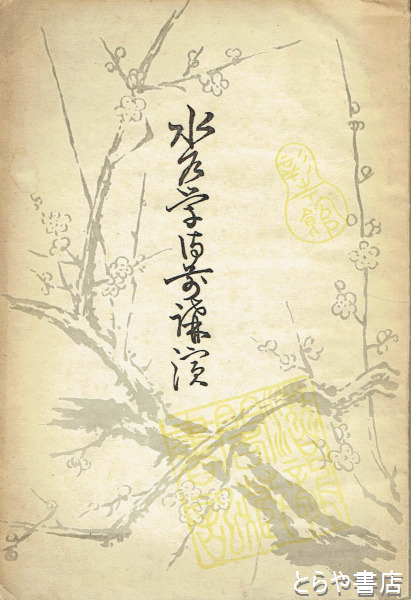 水戸学御前講演
とらや書店